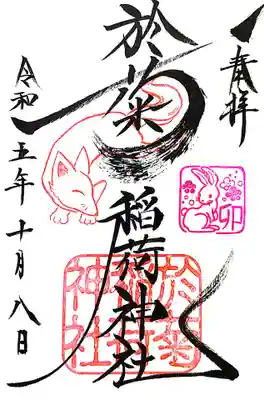 奉拝
於菊
稲荷神社
令和五年十月八日
卯
於菊稲荷神社